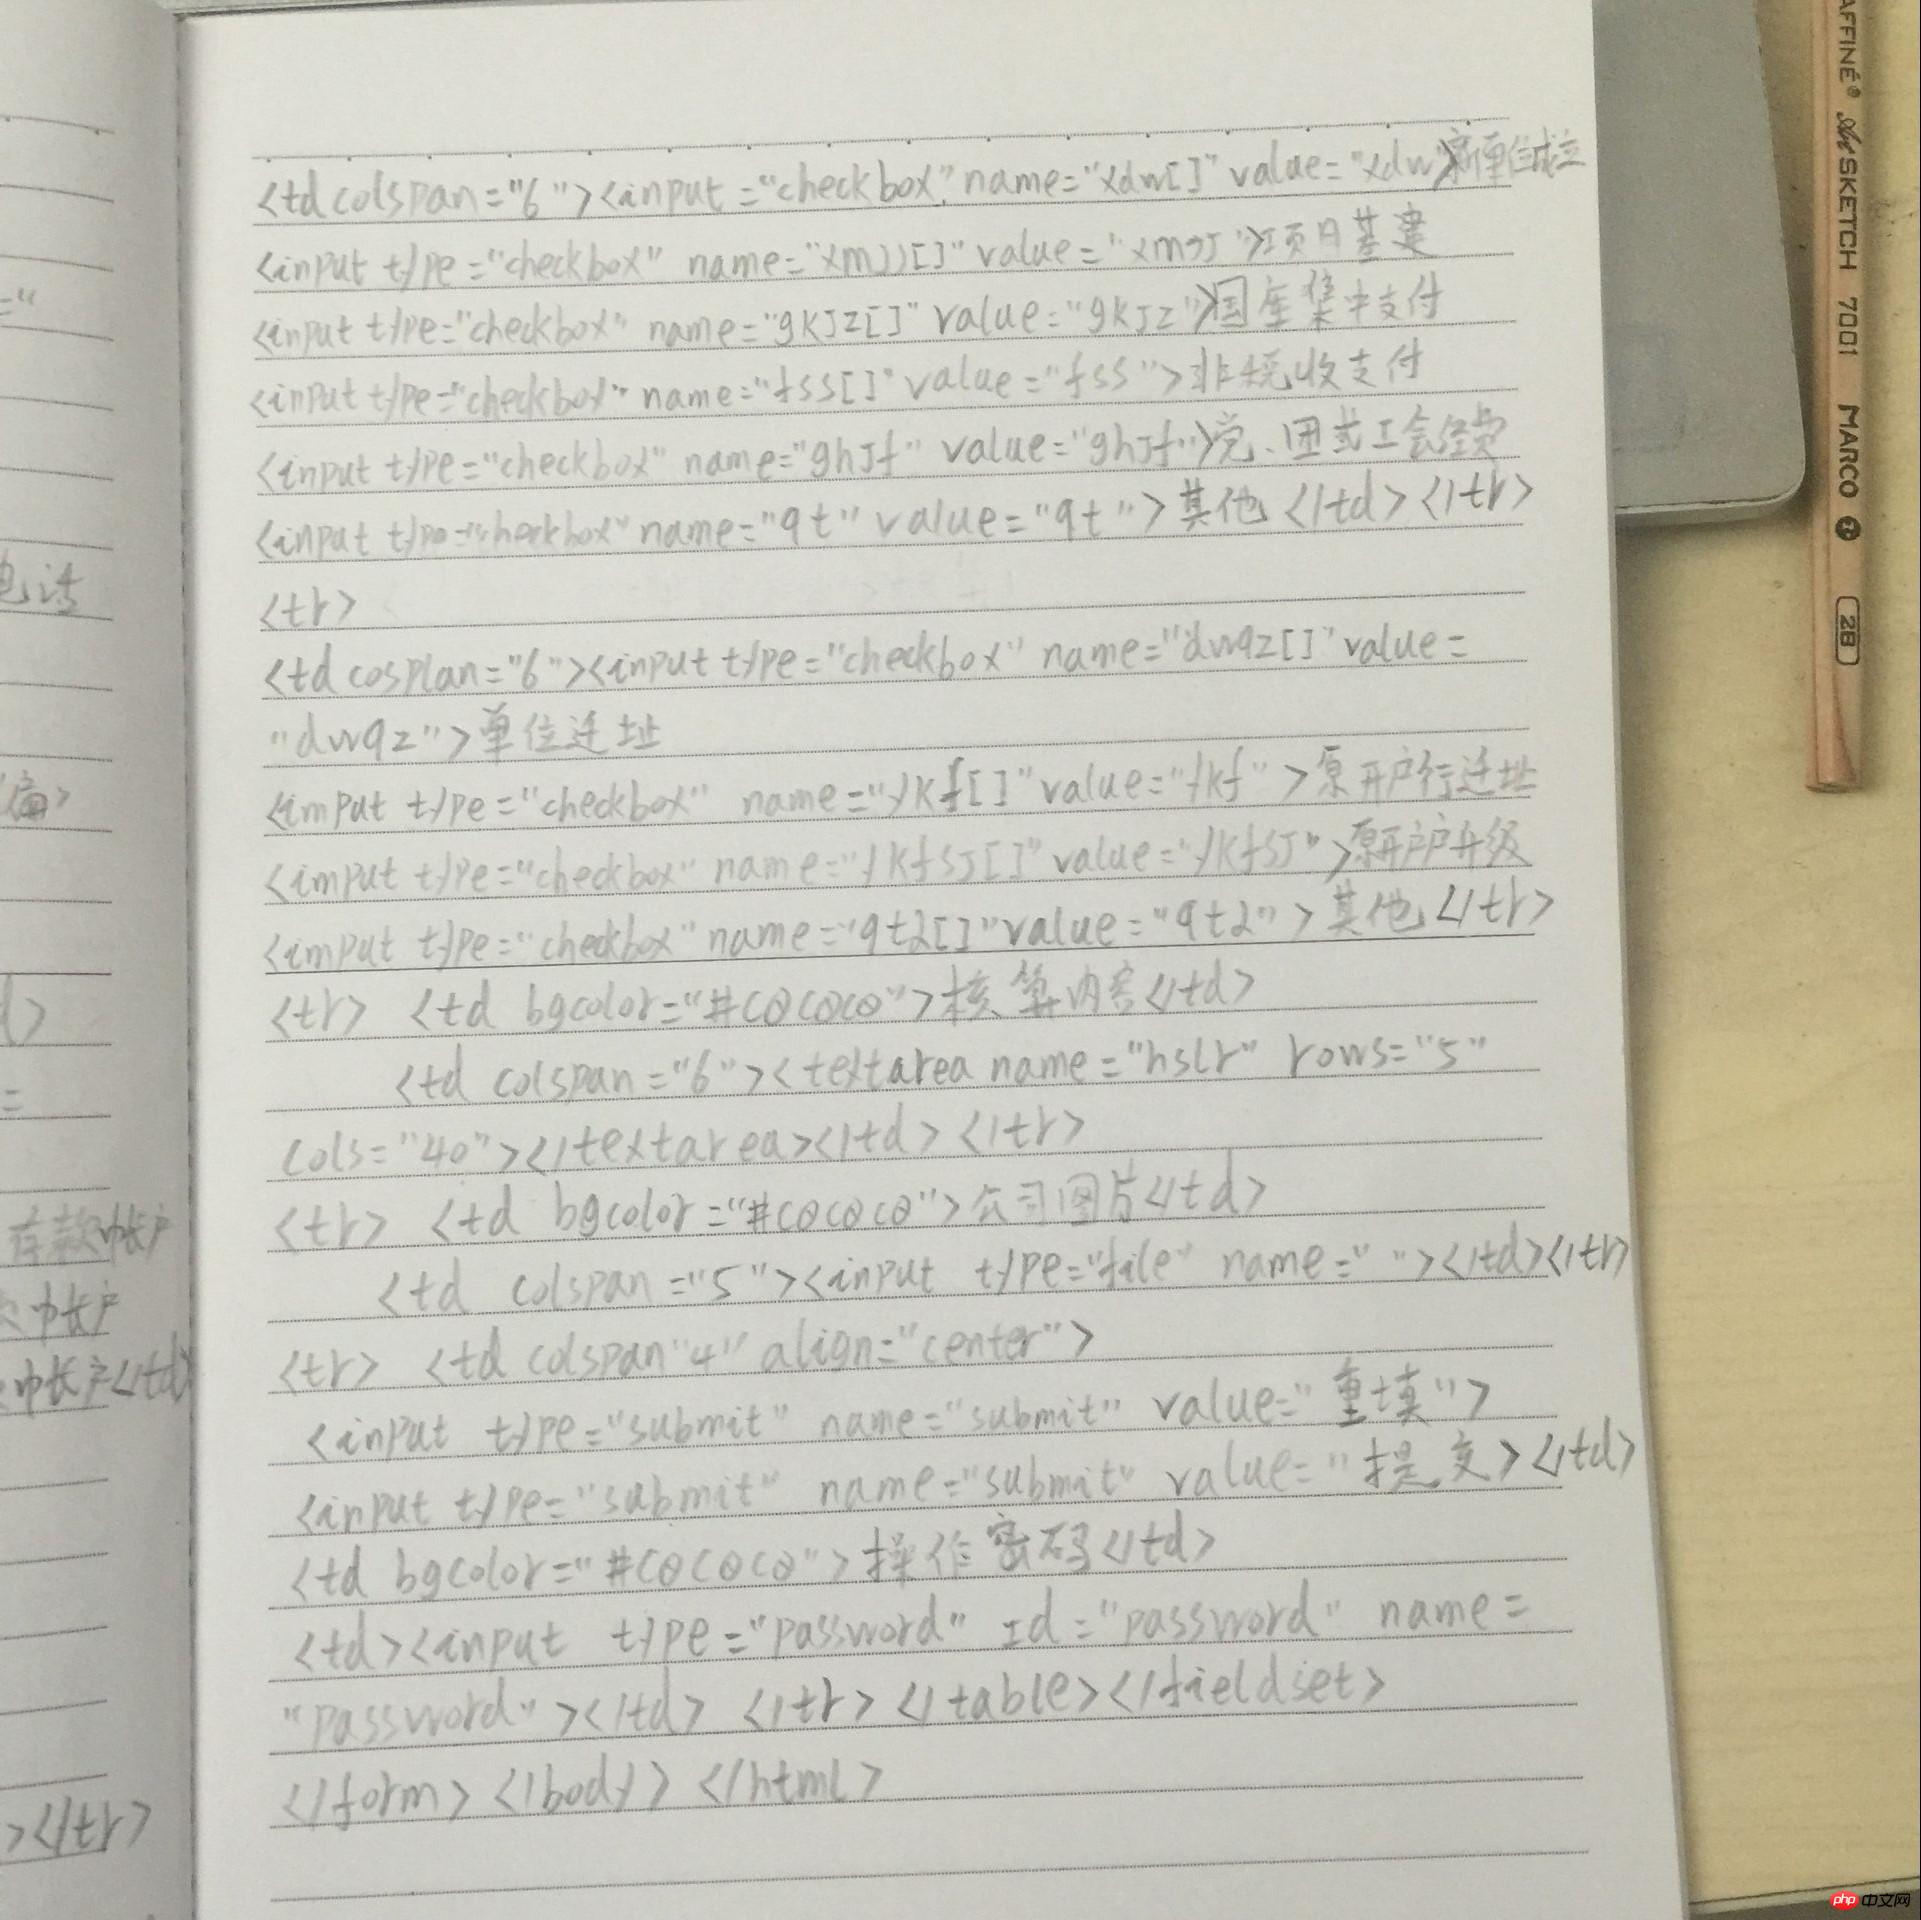 <td colspan="6"><input ="checkbox" name="xdw[]" value="xdw">新单位成立
<input type="checkbox" name="xmJJ[]" value="xmJJ">项目基建
<input type="checkbox" name="gkJz[]" value="gkJz">国库集中支付
<input type="checkbox" name="fss[]" value="fss">非税收支付
<input type="checkbox" name="ghJf" value="ghJf">党、团或工会经费
<input type="checkbox" name="qt" value="qt">其他</td></tr>
<tr>
<td cosplan="6"><input type="checkbox" name="dwqz[]" value=
"dwqz">单位迁址
<imput type="checkbox" name="ykf[]" value="ykf">原开户行迁址
<imput type="checkbox" name="ykfsJ[]" value="ykfsJ">原开户户升级
<imput type="checkbox" name="qt2[]" value="qt2">其他</tr>
<tr> <td bgcolor="#C0C0C0">核算内容</td>
<td colspan="6"><textarea name="hslr" rows="5"
cols="40"></textarea></td></tr>
<tr> <td bgcolor="#C0C0C0">公司图片</td>
<td colspan="5"><input type="file" name=" "></td></tr>
<tr> <td colspan"4" align="center">
<input type="submit" name="submit" value="重填">
<input type="submit" name="submit" value="提交></td>
<td bgcolor="#C0C0C0">操作密码</td>
<td><input type="password" Id="password" name=
"password"></td> </tr></table></fieldset>
</form></body></html>
="
电话
编>
d>
=
存款帐户
帐户
帐户</td>
></tr>
AFFINÉ® ArtSKETCH 7001 MARCO 2B
php 中文网